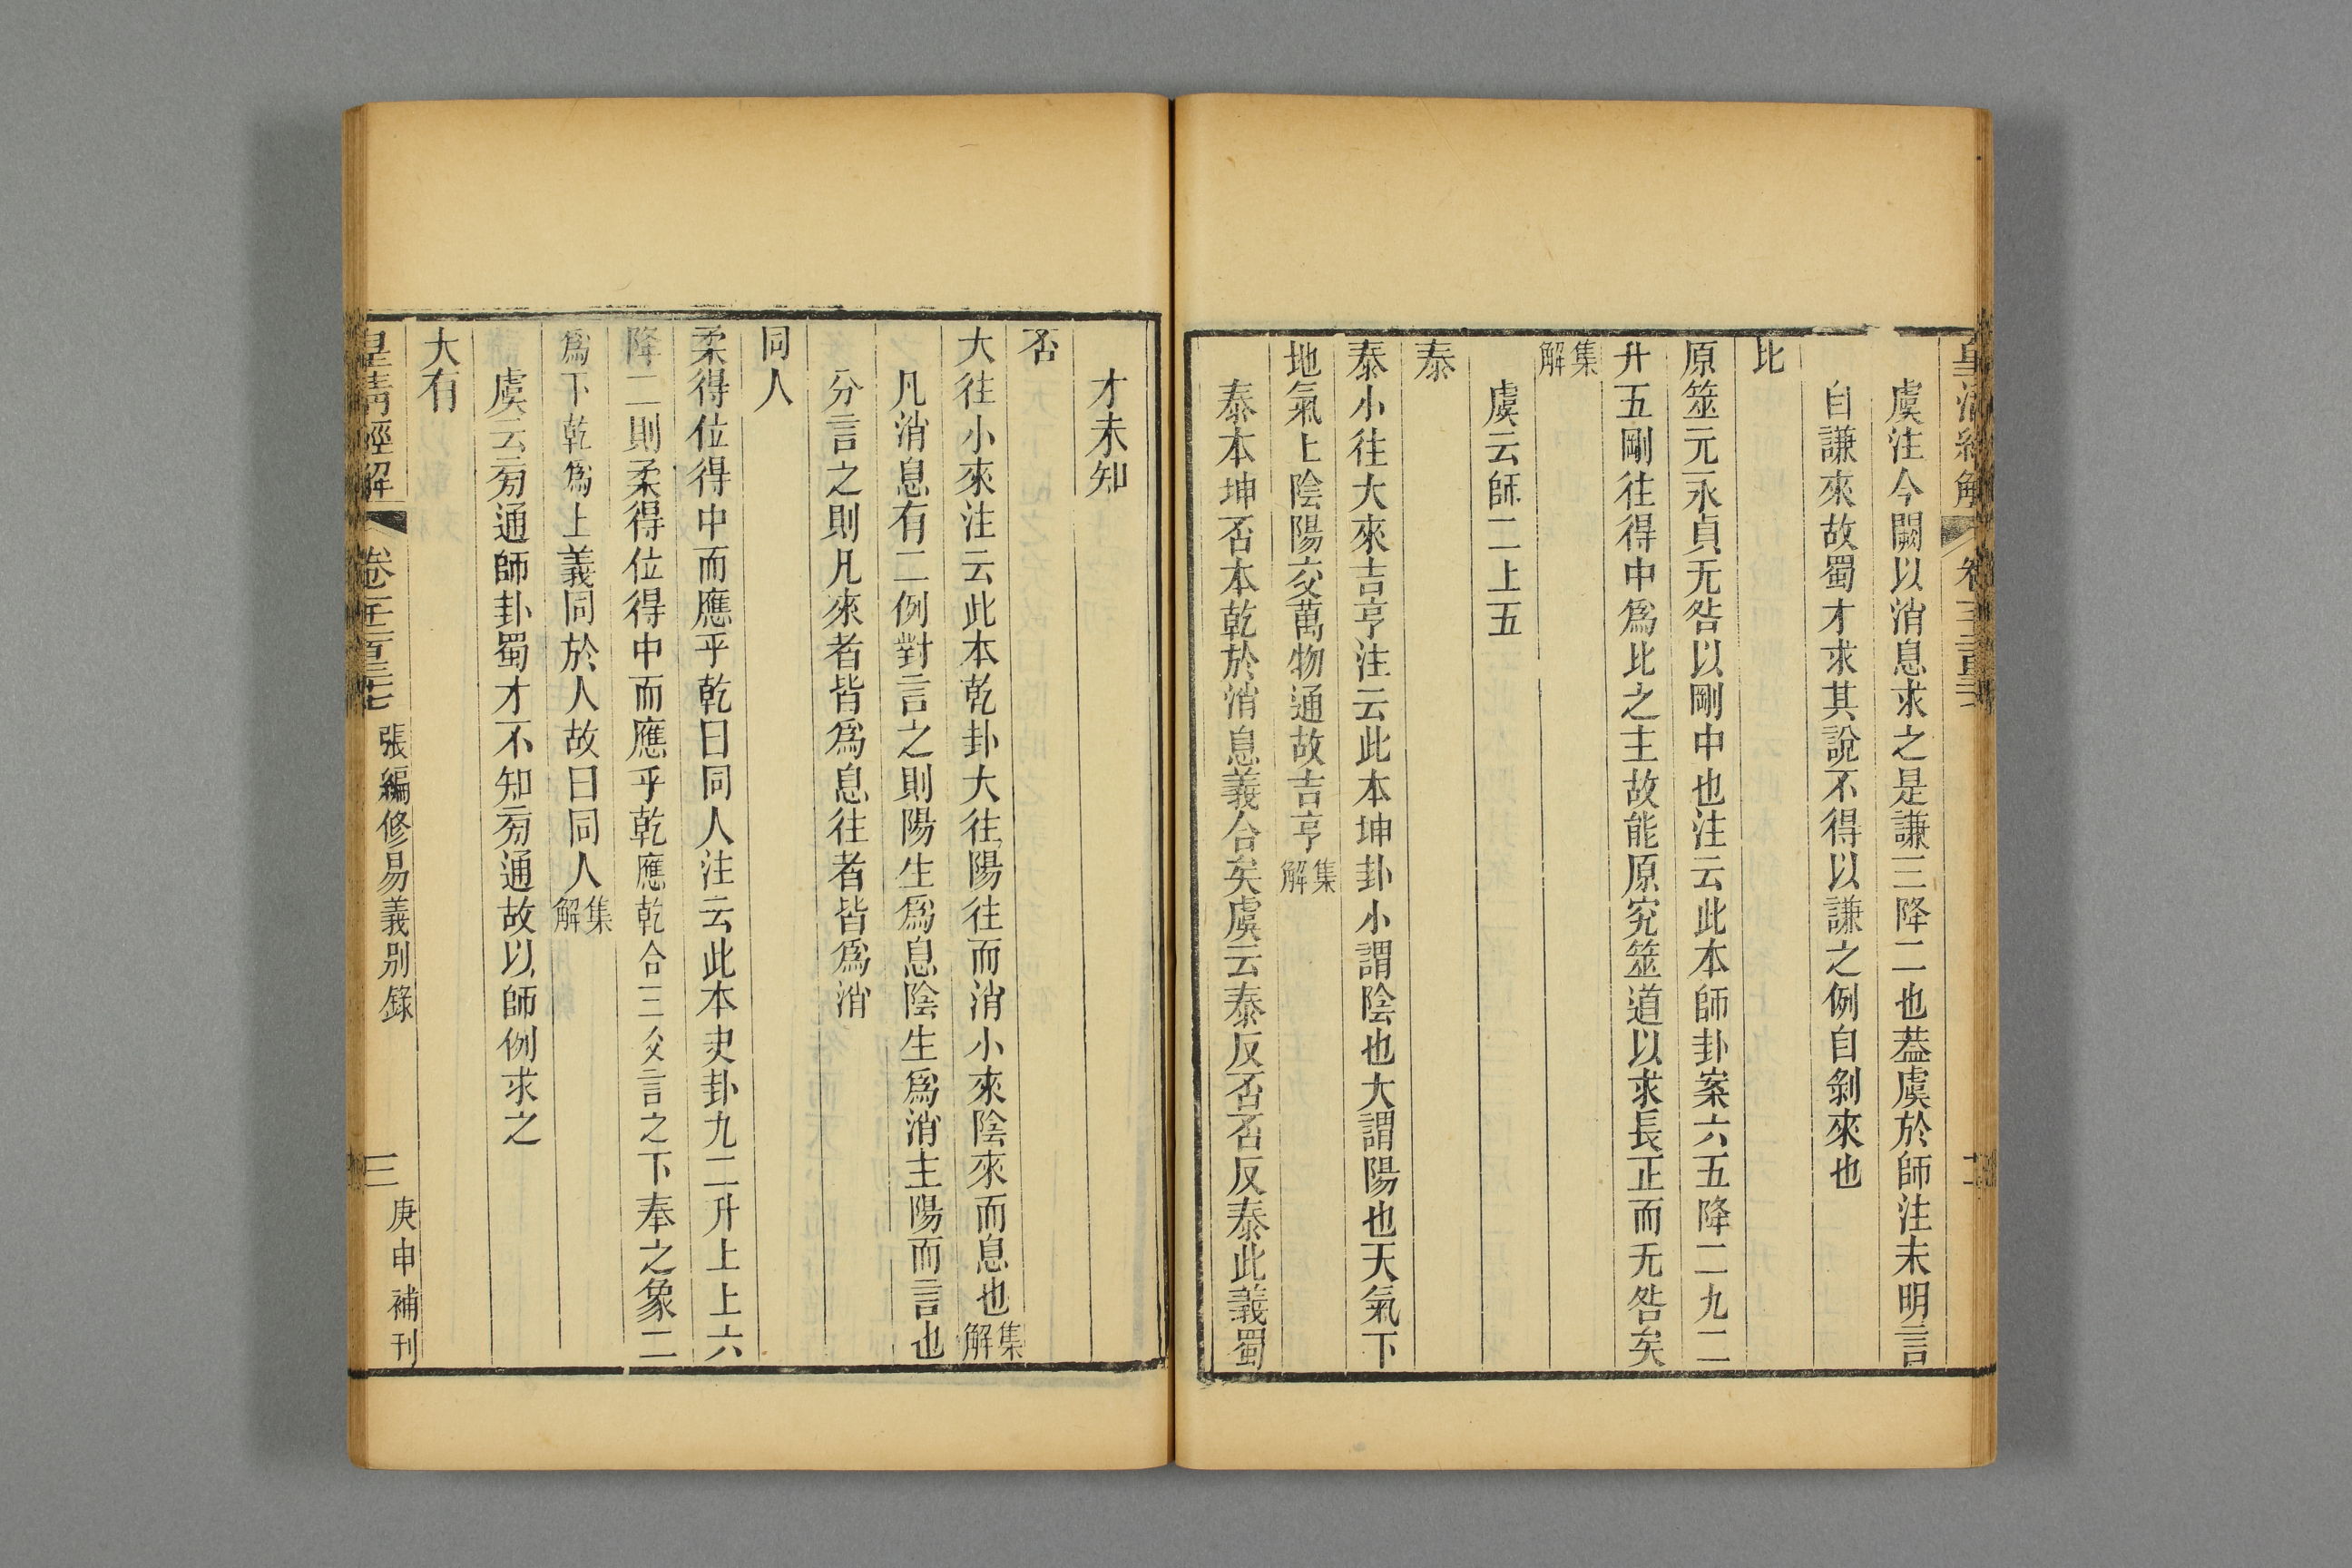 虞注今闕以消息求之是謙三降二也葢虞於師注未明言
自謙來故蜀才求其說不得以謙之例自剝來也
比
原筮元永貞无咎以剛中也注云此本師卦案六五降二九二
升五剛往得中爲比之主故能原究筮道以求長正而无咎矣
集解
虞云師二上五
泰
泰小往大來吉亨注云此本坤卦小謂陰也大謂陽也天氣下
地氣上陰陽交萬物通故吉亨集解
泰本坤否本乾於消息義合矣虞云泰反否否反泰此義蜀
才未知
否
大往小來注云此本乾卦大往陽往而消小來陰來而息也集解
凡消息有二例對言之則陽生爲息陰生爲消主陽而言也
分言之則凡來者皆爲息往者皆爲消
同人
柔得位得中而應乎乾曰同人注云此本夬卦九二升上上六
降二則柔得位得中而應乎乾應乾合三爻言之下奉之象二
爲下乾爲上義同於人故曰同人集解
虞云旁通師卦蜀才不知旁通故以師例求之
大有
皇清經解 卷千二百三十七 張編修易義別錄 三 庚申補刊